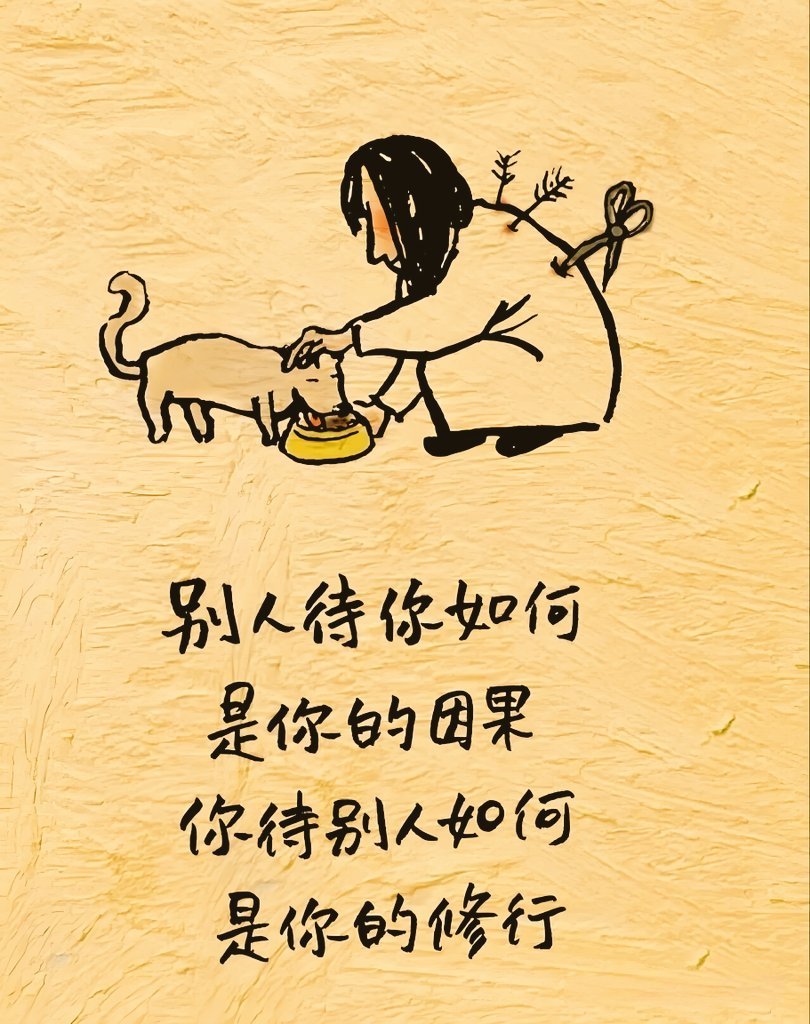 别人待你如何
是你的因果
你待别人如何
是你的修行